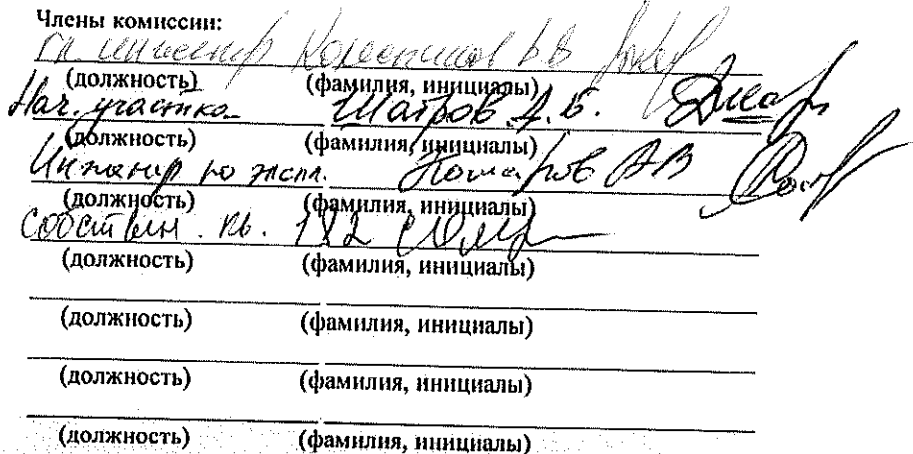 Члены комиссии:
гл. инженер В В
(должность) (фамилия, инициалы)
Нач. участка Шатров А.Б.
(должность) (фамилия, инициалы)
Инженер по экспл. Комаров АВ
(должность) (фамилия, инициалы)
Собствен. кв. 182
(должность) (фамилия, инициалы)
(должность) (фамилия, инициалы)
(должность) (фамилия, инициалы)
(должность) (фамилия, инициалы)